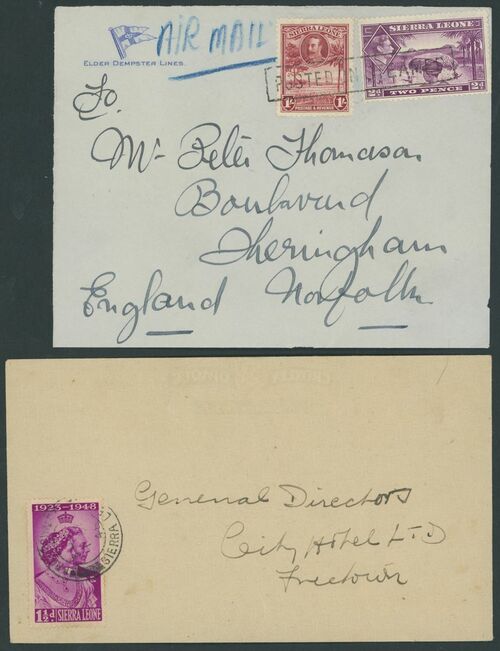 ELDER DEMPSTER LINES.
AIR MAIL
SIERRA LEONE
1/- 1/-
POSTAGE & REVENUE
SIERRA LEONE
2d TWO PENCE 2d
POSTED IN
To
Mr Peter Thomason
Boulevard
Sheringham
England Norfolk
1923-1948
SIERRA
1½d SIERRA LEONE
General Directors
City Hotel LTD
Freetown